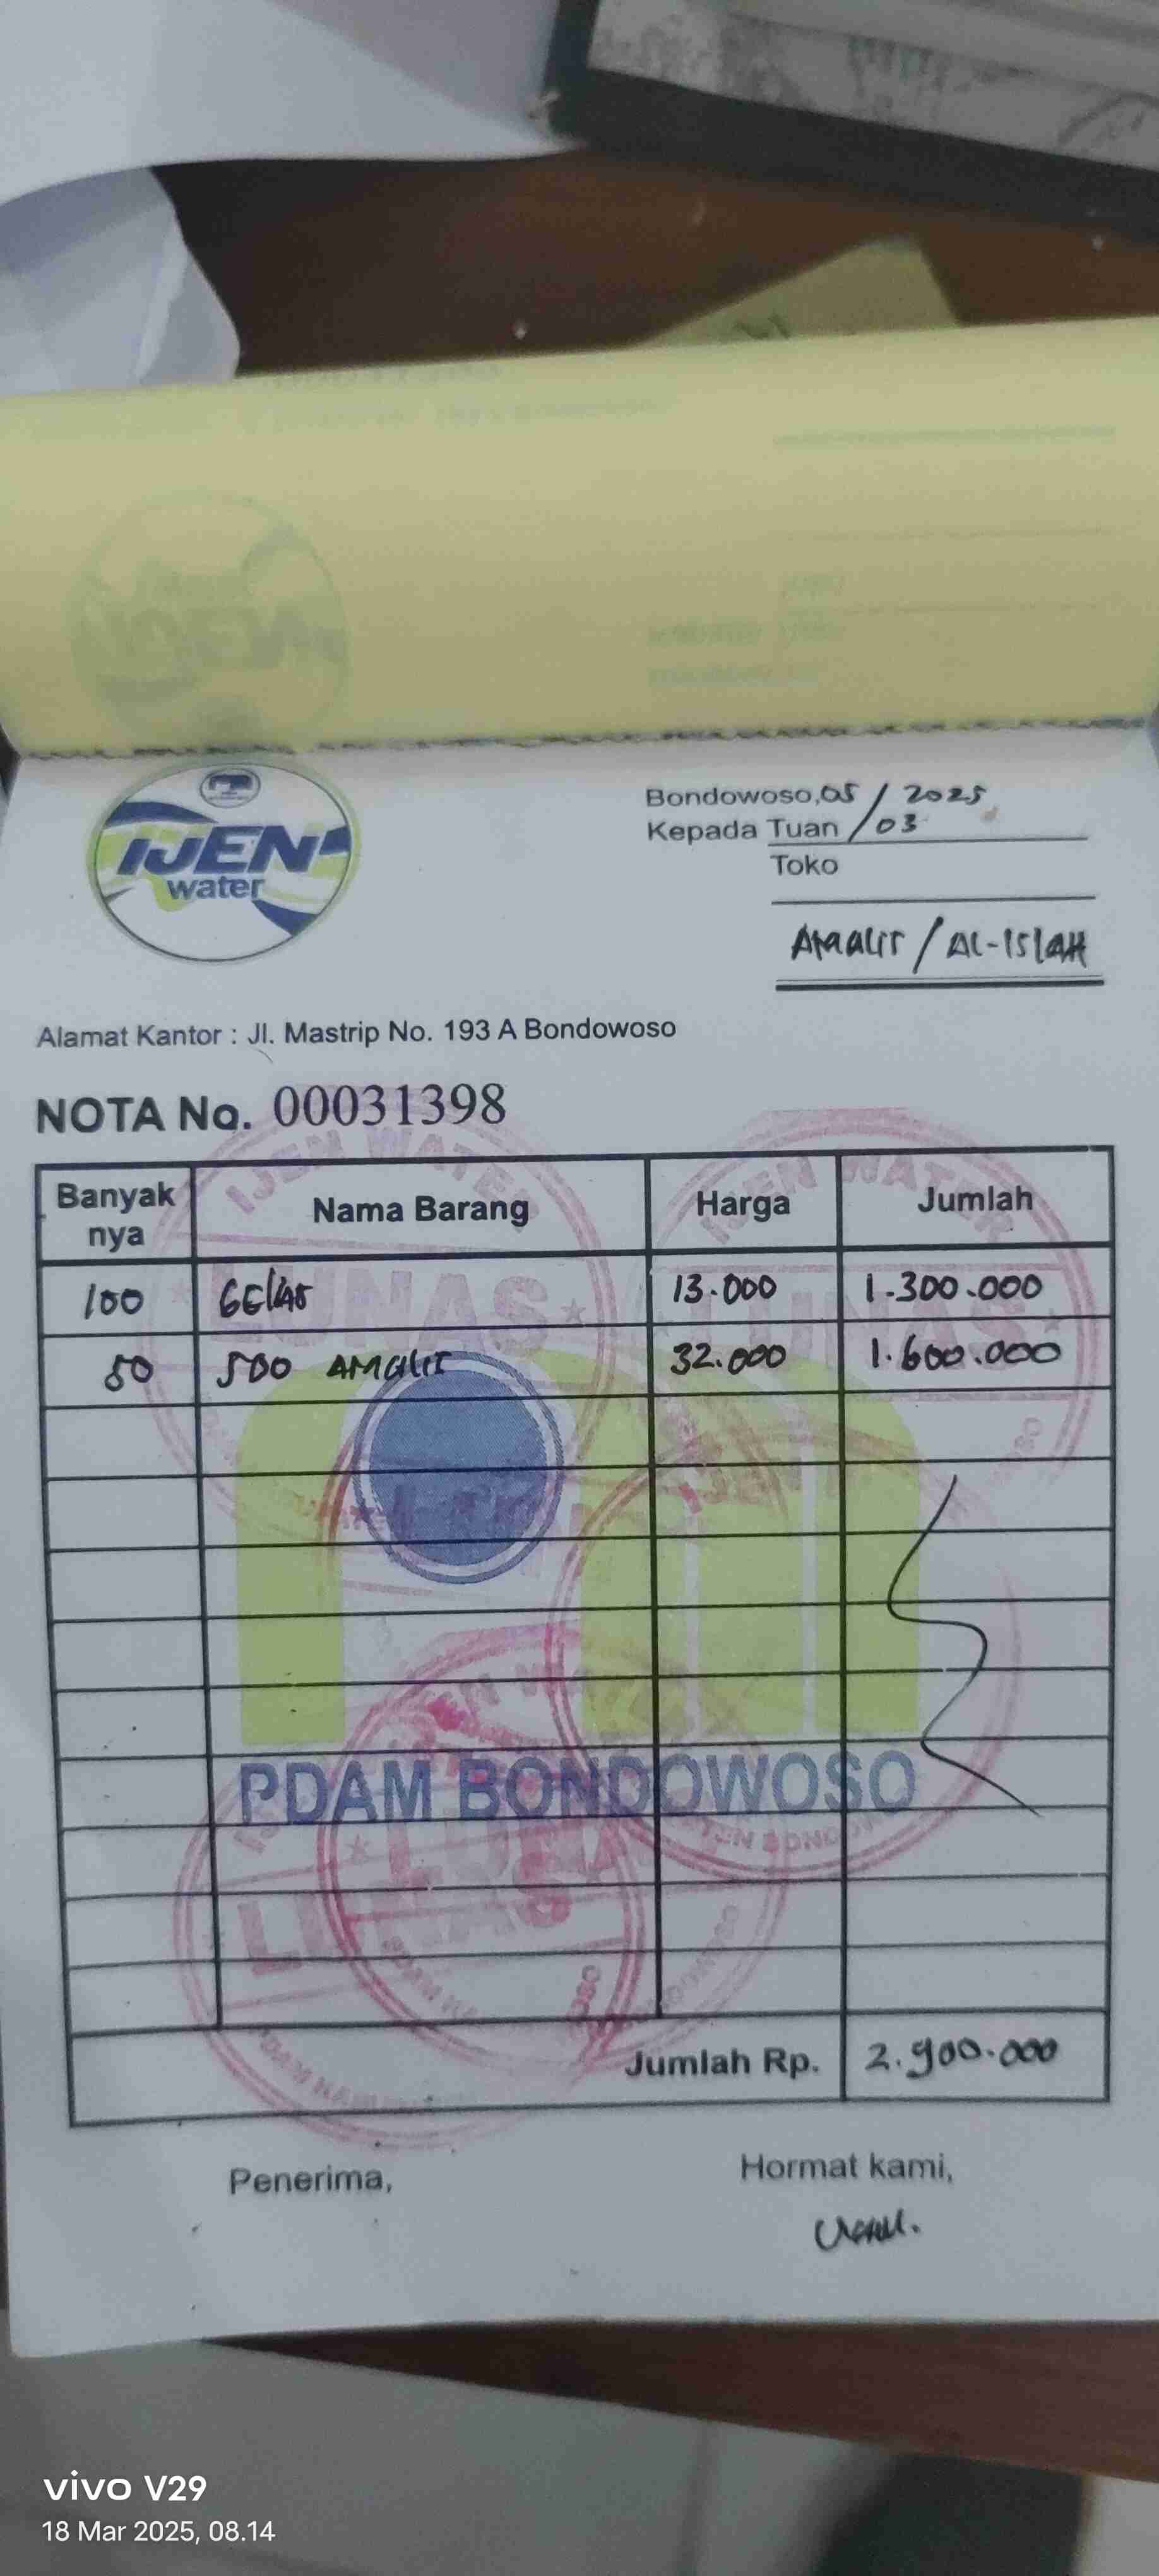 IJEN
water
Bondowoso, 05 / 2025
Kepada Tuan / 03
Toko
AMALIT / AL-ISLAH
Alamat Kantor : Jl. Mastrip No. 193 A Bondowoso
NOTA No. 00031398
Banyak nya Nama Barang Harga Jumlah
100 GELAS 13.000 1.300.000
50 500 AMALIT 32.000 1.600.000
IJEN WATER
LUNAS
IJEN WATER
LUNAS
PDAM BONDOWOSO
LUNAS
LUNAS
Jumlah Rp. 2.900.000
Penerima,
Hormat kami,
vivo V29
18 Mar 2025, 08.14